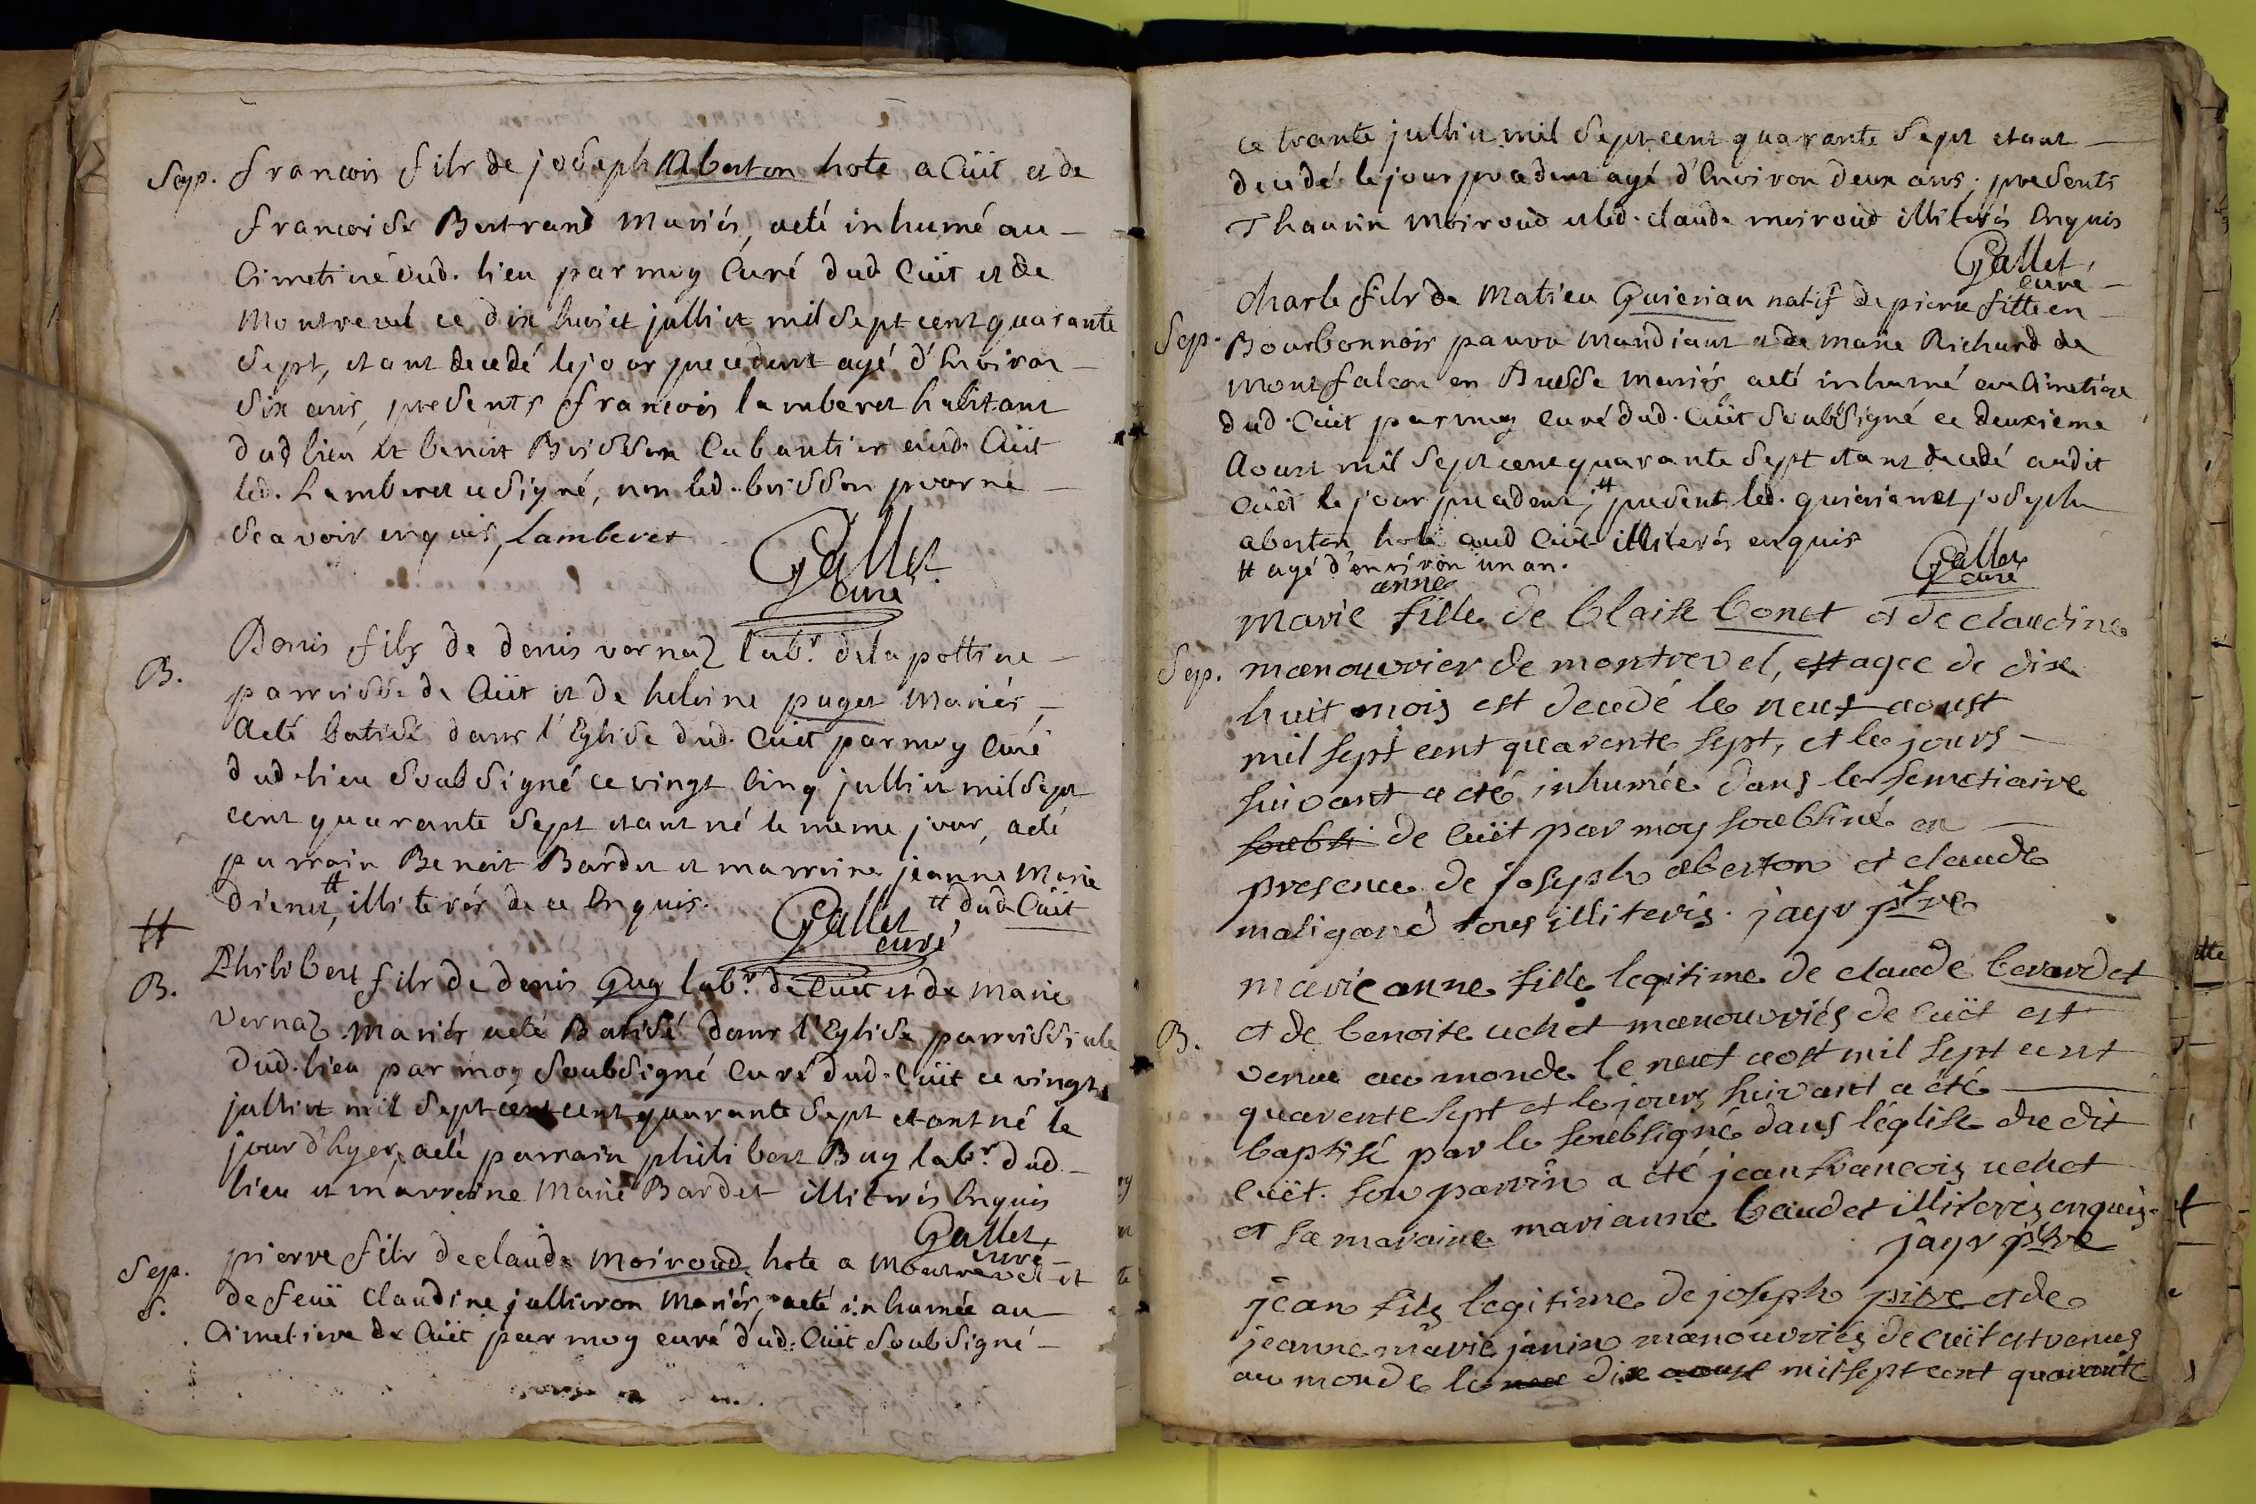 Sep. francois fils de joseph Aberton hote a Cüit et de
francoise Bertrand Mariés, aeté inhumé au
Cimetiere dud. lieu par moy Curé dud Cüit et de
Montrevel ce dix huict julliet mil sept cent quarante
sept, etant decedé le jour precedent agé d'Environ
six ans, presents francois lamberet habitant
dud lieu et benoit Brisson Cabantier aud. Cüit
led. Lamberet a signé, non led. brisson pour ne
scavoir enquis, Lamberet
Gallet
Curé
B. Denis fils de denis vernaz labr. de la pottiere
parroisse de Cüit et de heleine puget Mariés,
Aeté batisé dans l'Eglise dud. Cuit par moy Curé
dud. lieu soubsigné ce vingt Cinq julliet mil sept
cent quarante sept etant né le meme jour, aeté
parrain Benoit Bardet et marreine jeanne Marie
dienet, # illiterés de ce Enquis. # dud Cüit
Gallet
curé
#
B. Philibert fils de denis Guy labr. de Cuit et de Marie
vernaz Mariés aeté Batisé dans l'Eglise parroissiale
dud. lieu par moy soubsigné Curé dud. Cüit ce vingt
julliet mil sept cent cent quarante sept etant né le
jour d'hyer, aeté parrain philibert Buy labr. dud.
lieu et marreine Marie Bardet illiterés Enquis
Gallet
curé
Sep. pierre fils de claude Moiroud hote a Montrevel et
S. de feuë Claudine jullieron Mariés, aeté inhumée au
Cimetiere de Cüit par moy curé dud. Cüit soubsigné
ce trante julliet mil sept cent quarante sept etant
decedé le jour precedent agé d'Environ deux ans, presents
Thaurin Moiroud et led. claude moiroud illiterés Enquis
Gallet
curé
charle fils de Matieu Guierian natif de pierre fitte en
Sep. Bourbonnois pauvre Mandiant et de marie Richard de
Montfalcon en Bresse mariés aeté inhumé au Cimetiere
dud. Cüit par moy curé dud. Cüit soubsigné ce deuxieme
Aoust mil sept cent quarante sept etant decedé audit
Cüit le jour precedent, # present led. guierian et joseph
aberton hote aud Cüit illiterés enquis
# agé d'environ un an.
Gallet
curé
anne
Marie fille de blaise bonet et de claudine
Sep. manouvrier de montrevel, agee de dix
huit mois est decedé le neuf aoust
mil sept cent quarente sept, et le jours
suivant a eté inhumée dans le semetiaire
soubsi de Cüit par moy soubsiné en
presence de joseph aberton et claude
maligand tous illiteris. jayr ptre
marie anne fille legitime de claude berardet
B. et de benoite uchet manouvriés de cüit est
venue au monde le neuf aost mil sept cent
quarente sept et le jours suivant a été
baptisé par le soubsigné dans léglise du dit
cüit. son parrin a été jean francois uchet
et sa maraine marianne baudet illiteris enquis.
jayr ptre
jean fils legitime de joseph pitre et de
jeanne marie janin manouvriés de cüit et venus
au monde le dix aoust mil sept cent quarante